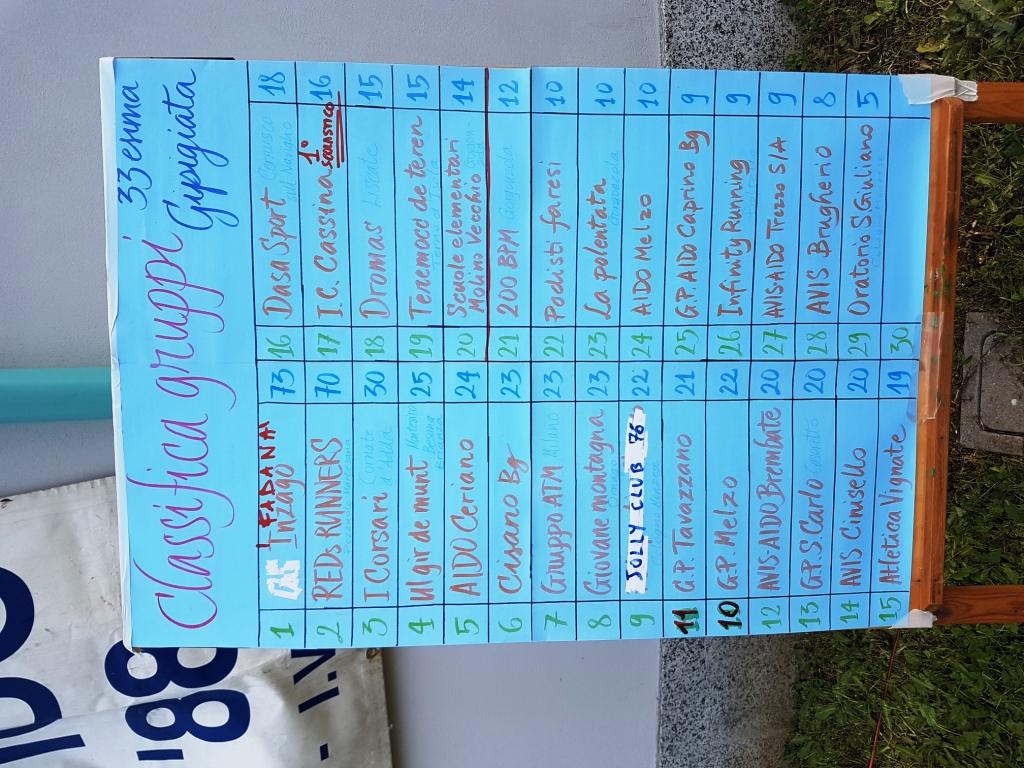 Classifica gruppi
33esima
Gipigiata
1 I FADANA Inzago 73
2 REDs RUNNERS 70
3 I Corsari Cornate d'Adda 30
4 Ul gir de munt 25
5 AIDO Ceriano 24
6 Cisano Bg 23
7 Gruppo ATM Milano 23
8 Giovane montagna 23
9 JOLLY CLUB 76 22
11 G.P. Tavazzano 21
10 G.P. Melzo 22
12 AVIS-AIDO Brembate 20
13 G.P.S. Carlo 20
14 AVIS Cinisello 20
15 Atletica Vignate 19
16 Dasa Sport Cernusco sul Naviglio 18
17 I.C. Cassina 1° SCOLASTICO 16
18 Dromas Liscate 15
19 Tenemoco de teren 15
20 Scuole elementari Molino Vecchio 14
21 200 BPM 12
22 Podisti faresi 10
23 La polentata 10
24 AIDO Melzo 10
25 G.P. AIDO Caprino Bg 9
26 Infinity Running 9
27 AVIS-AIDO Trezzo S/A 9
28 AVIS Brugherio 8
29 Oratorio S Giuliano 5
30
'88